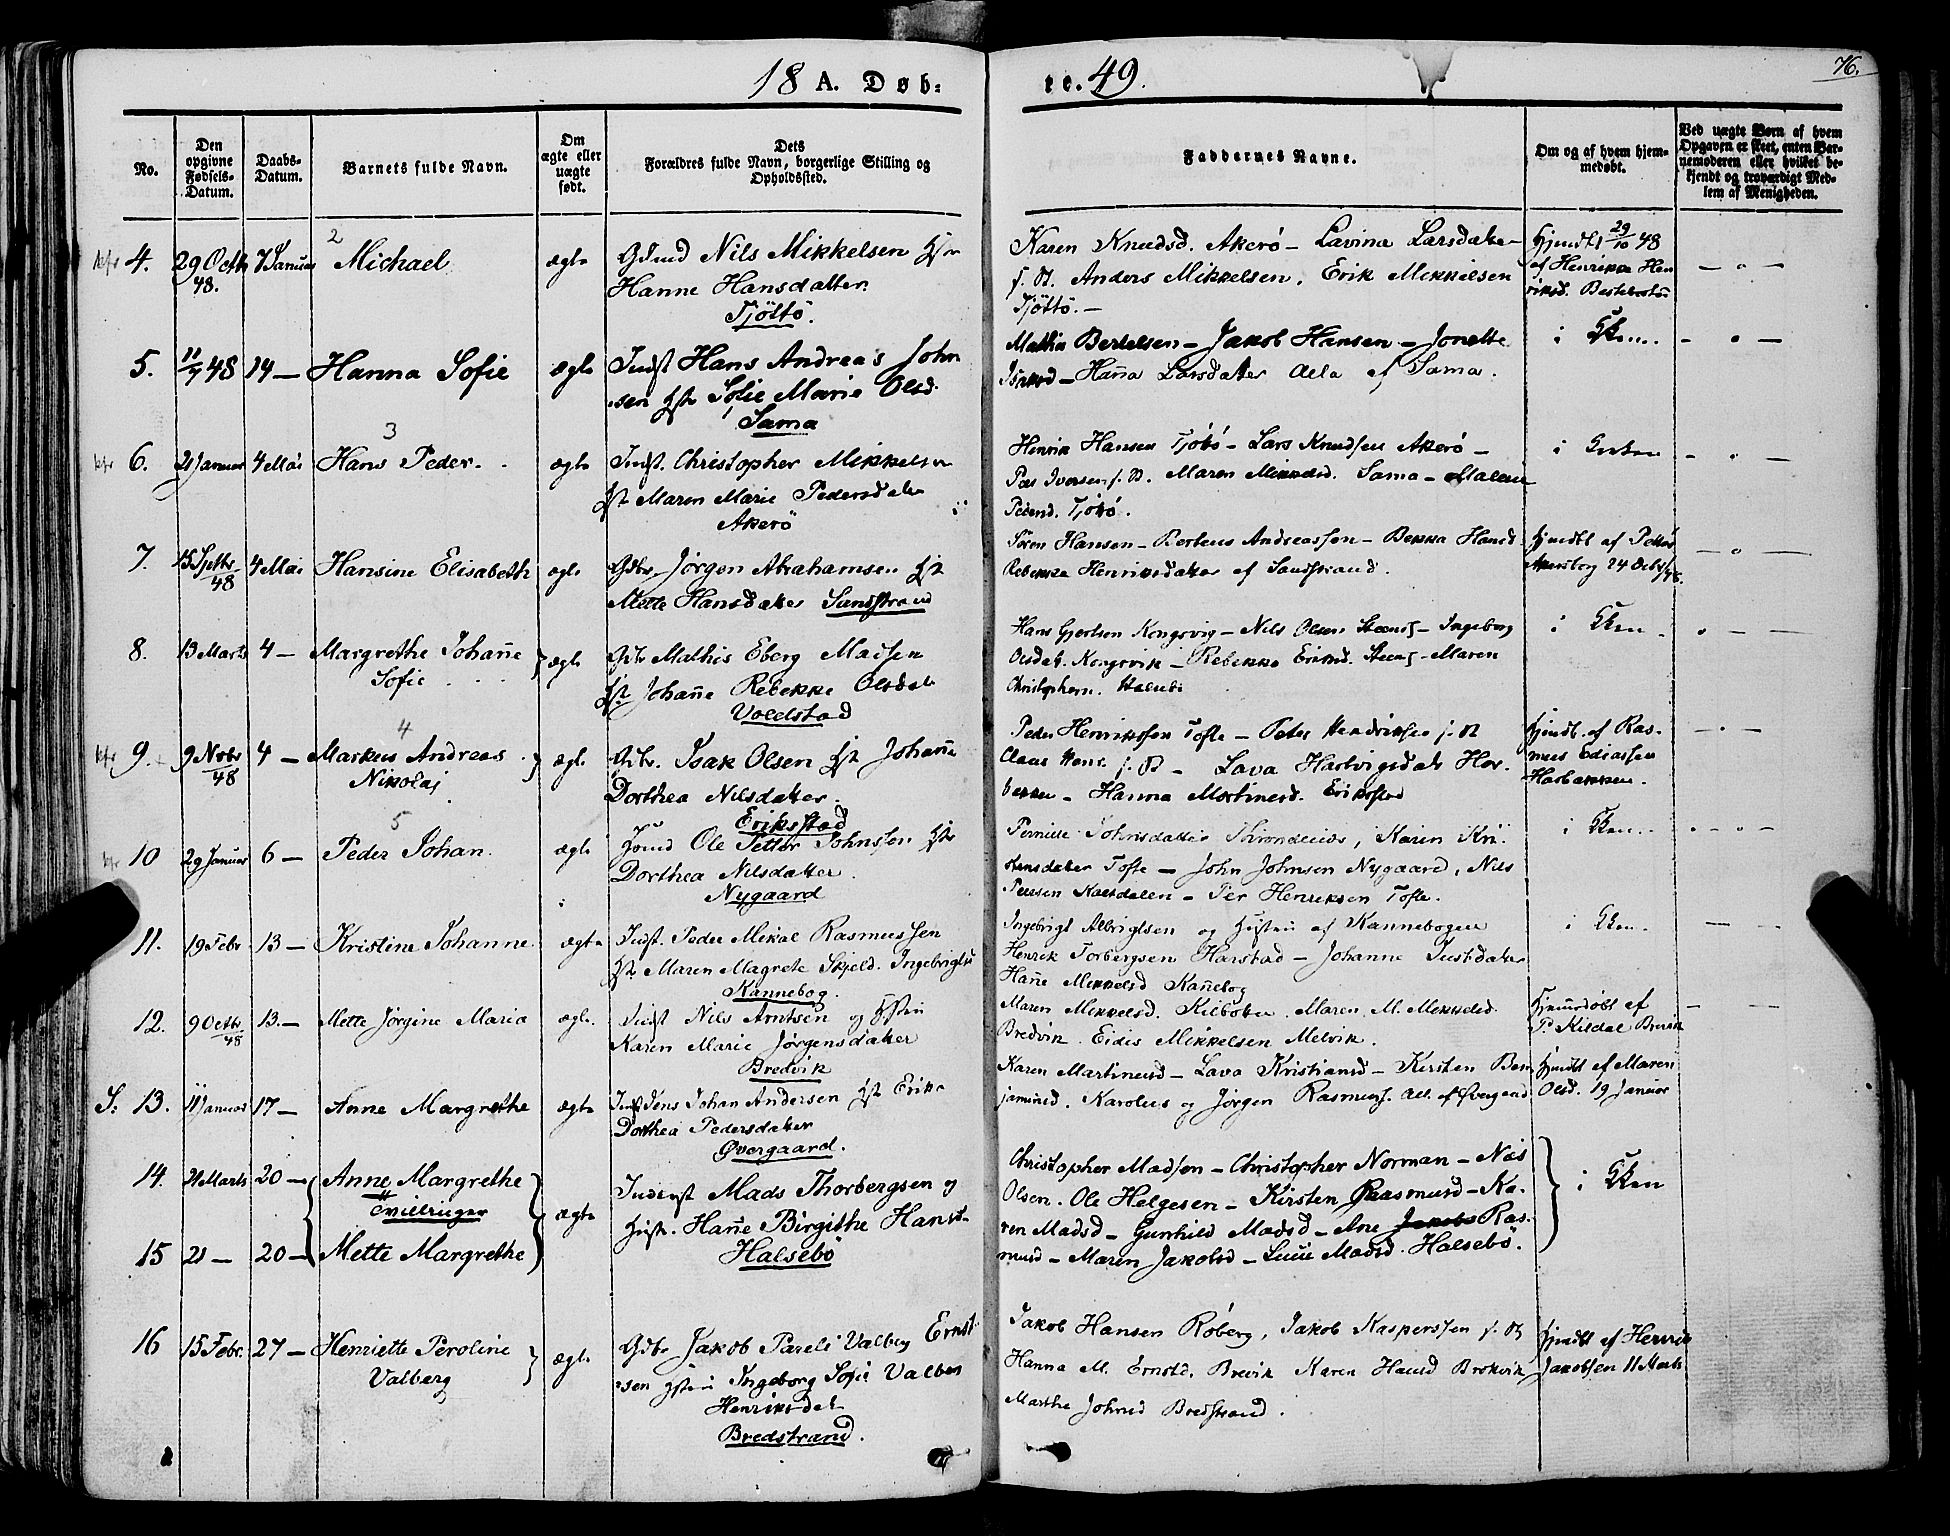 18 A. Døb:
te. 49.
76.
No.
Den opgivne Fødsels-Datum.
Daabs-Datum.
Barnets fulde Navn.
Om ægte eller uægte født.
Dets
Forældres fulde Navn, borgerlige Stilling og
Opholdssted.
Faddernes Navne.
Om og af hvem hjem-
medøbt.
Ved uægte Børn af hvem
Opgaven er skeet, enten Bar-
nemoderen eller hvilket be-
kjendt og troværdigt Med-
lem af Menigheden.
4. 29 Octb 48. 7 Januar 2 Michael ægte
Nils Mikkelsen
Hanne Hansdatter
Tjøttö.
Karen Knudsd. Akerö - Lavina Larsdatter
Anders Mikkelsen, Erik Mikkelsen
Tjöttö. -
Hjmdbt 29/10 48
af Henrikka Hen
riksd.
5. 11/7 48 14 - Hanna Sofie ægte
Indst Hans Andreas John
sen Hst Sofie Marie Olsd
Sama
Bertelsen - Jakob Hansen - Jonette
Isaksd - Hanna Larsdatter alla af Sama.
i Kken.
6. 21 Januar 4 Mai 3 Hans Peder. ægte
Indst. Christopher Mikkelsen
Hst Maren Marie Pedersdatter
Akerö
Henrik Hansen - Lars Knudsen Akerö -
Iversen Maren Mikkelsd. Sama -
Pedersd.
i
7. 15 Septbr 48 4 Mai Hansine Elisabeth ægte
Gdbr Jørgen Abrahamsen Hst
Mette Hansdatter Sandstrand
Søren Hansen - Andreassen - Bekka Hansd
Rebekka Henriksdatter af Sandstrand.
Hjmdbt af Petter
24 Octbr 48.
8. 13 Marts 4 - Margrethe Johanne
Sofie ægte
Gdbr Mathis Eberg Madsen
Hst Johanne Rebekke Olsdat
Voldstad
Hans Gjertsen Kongsvig - Nils Olsen - Ingeborg
Olsdat. Kongsvik - Rebekka Eriksd. - Maren
i Kken.
9. 9 Novbr 48 4 - 4 Markus Andreas
Nikolaj ægte
Gdbr. Isak Olsen Hst Johanna
Dorthea Nilsdatter.
Eriksstad
Peder Henriksen Tofte - Peter Hendriksen
Claus Lava Hartvigsdat Har.
bakken - Hanna Martinusd. Eriksstad
Hjmdbt. af Ras-
mus
Harbakken.
10 29 Januar 6 - 5 Peder Johan. ægte
Ole Petter Johnsen Hst
Dorthea Nilsdatter
Nygaard
Pernille Johnsdatter, Karen Kri-
stensdatter Tofte - John Johnsen Nygaard, Nils
Petersen - Per Henriksen Tofte.
i Kken.
11. 19 Febr 13 - Kristine Johanne ægte
Indst. Peder Mikal Rasmussen
Hst Maren Magrete Skjeld. Ingebrigtsd
Kannebog.
Ingebrigt Albrigtsen og Hustru af Kannebogen
Henrik Torbergsen Harstad - Johanne Justdatter
Hanne Mikkelsd Kanebog
i Kken.
12. 9 Octb 48 13. - Mette Jørgine Maria ægte.
Indst Nils Arntsen og Hstru
Karen Marie Jørgensdatter
Bredvik
Maren Mikkelsd. Kilbotn. Maren M. Mikkelsd.
Bredvik. Eidis Mikkelsen Melvik.
Hjemmedøbt af
P. Kildal
S: 13. 11 Januar 17 - Anne Margrethe ægte
Indst Jens Johan Andersen Hst Erika
Dorthea Pedersdatter
Øvergaard.
Karen Martinusd - Lava Kristiansd - Kirsten Ben
jaminsd. Karolus og Jørgen Rasmuss. all. af Øvergaard
Hjmdbt af Maren
Olsd. 19 Januar
14. 21 Marts 20 - Anne Margrethe
Tvillinger ægte
15 21 - 20 - Mette Margrethe
Inderst Mads Thorbergsen og
Hust. Hanne Birgithe Hansd-
Halsebö
Christopher Madsen - Christopher Norman - Nils
Olsen. Ole Helgesen - Kirsten Rasmusd - Ka-
ren Madsd - Gunhild Madsd - Ane Jakobs Ras-
musd - Maren Jakobsd - Madsd. Halsebö.
i Kken
16 15 Febr. 27 - Henriette Peroline
Valberg ægte
Gdbr Jakob Pareli Valberg Ernst
sen Hstru Ingeborg Sofie Valber
Henriksdat
Bredstrand.
Jakob Hansen Röberg, Jakob Kaspersen
Hanna M. Ernstd. Brevik Karen Hansd
Marthe Johnsd Bredstrand.
Hjmdbt af Henrik
Jakobsen 11 Marts